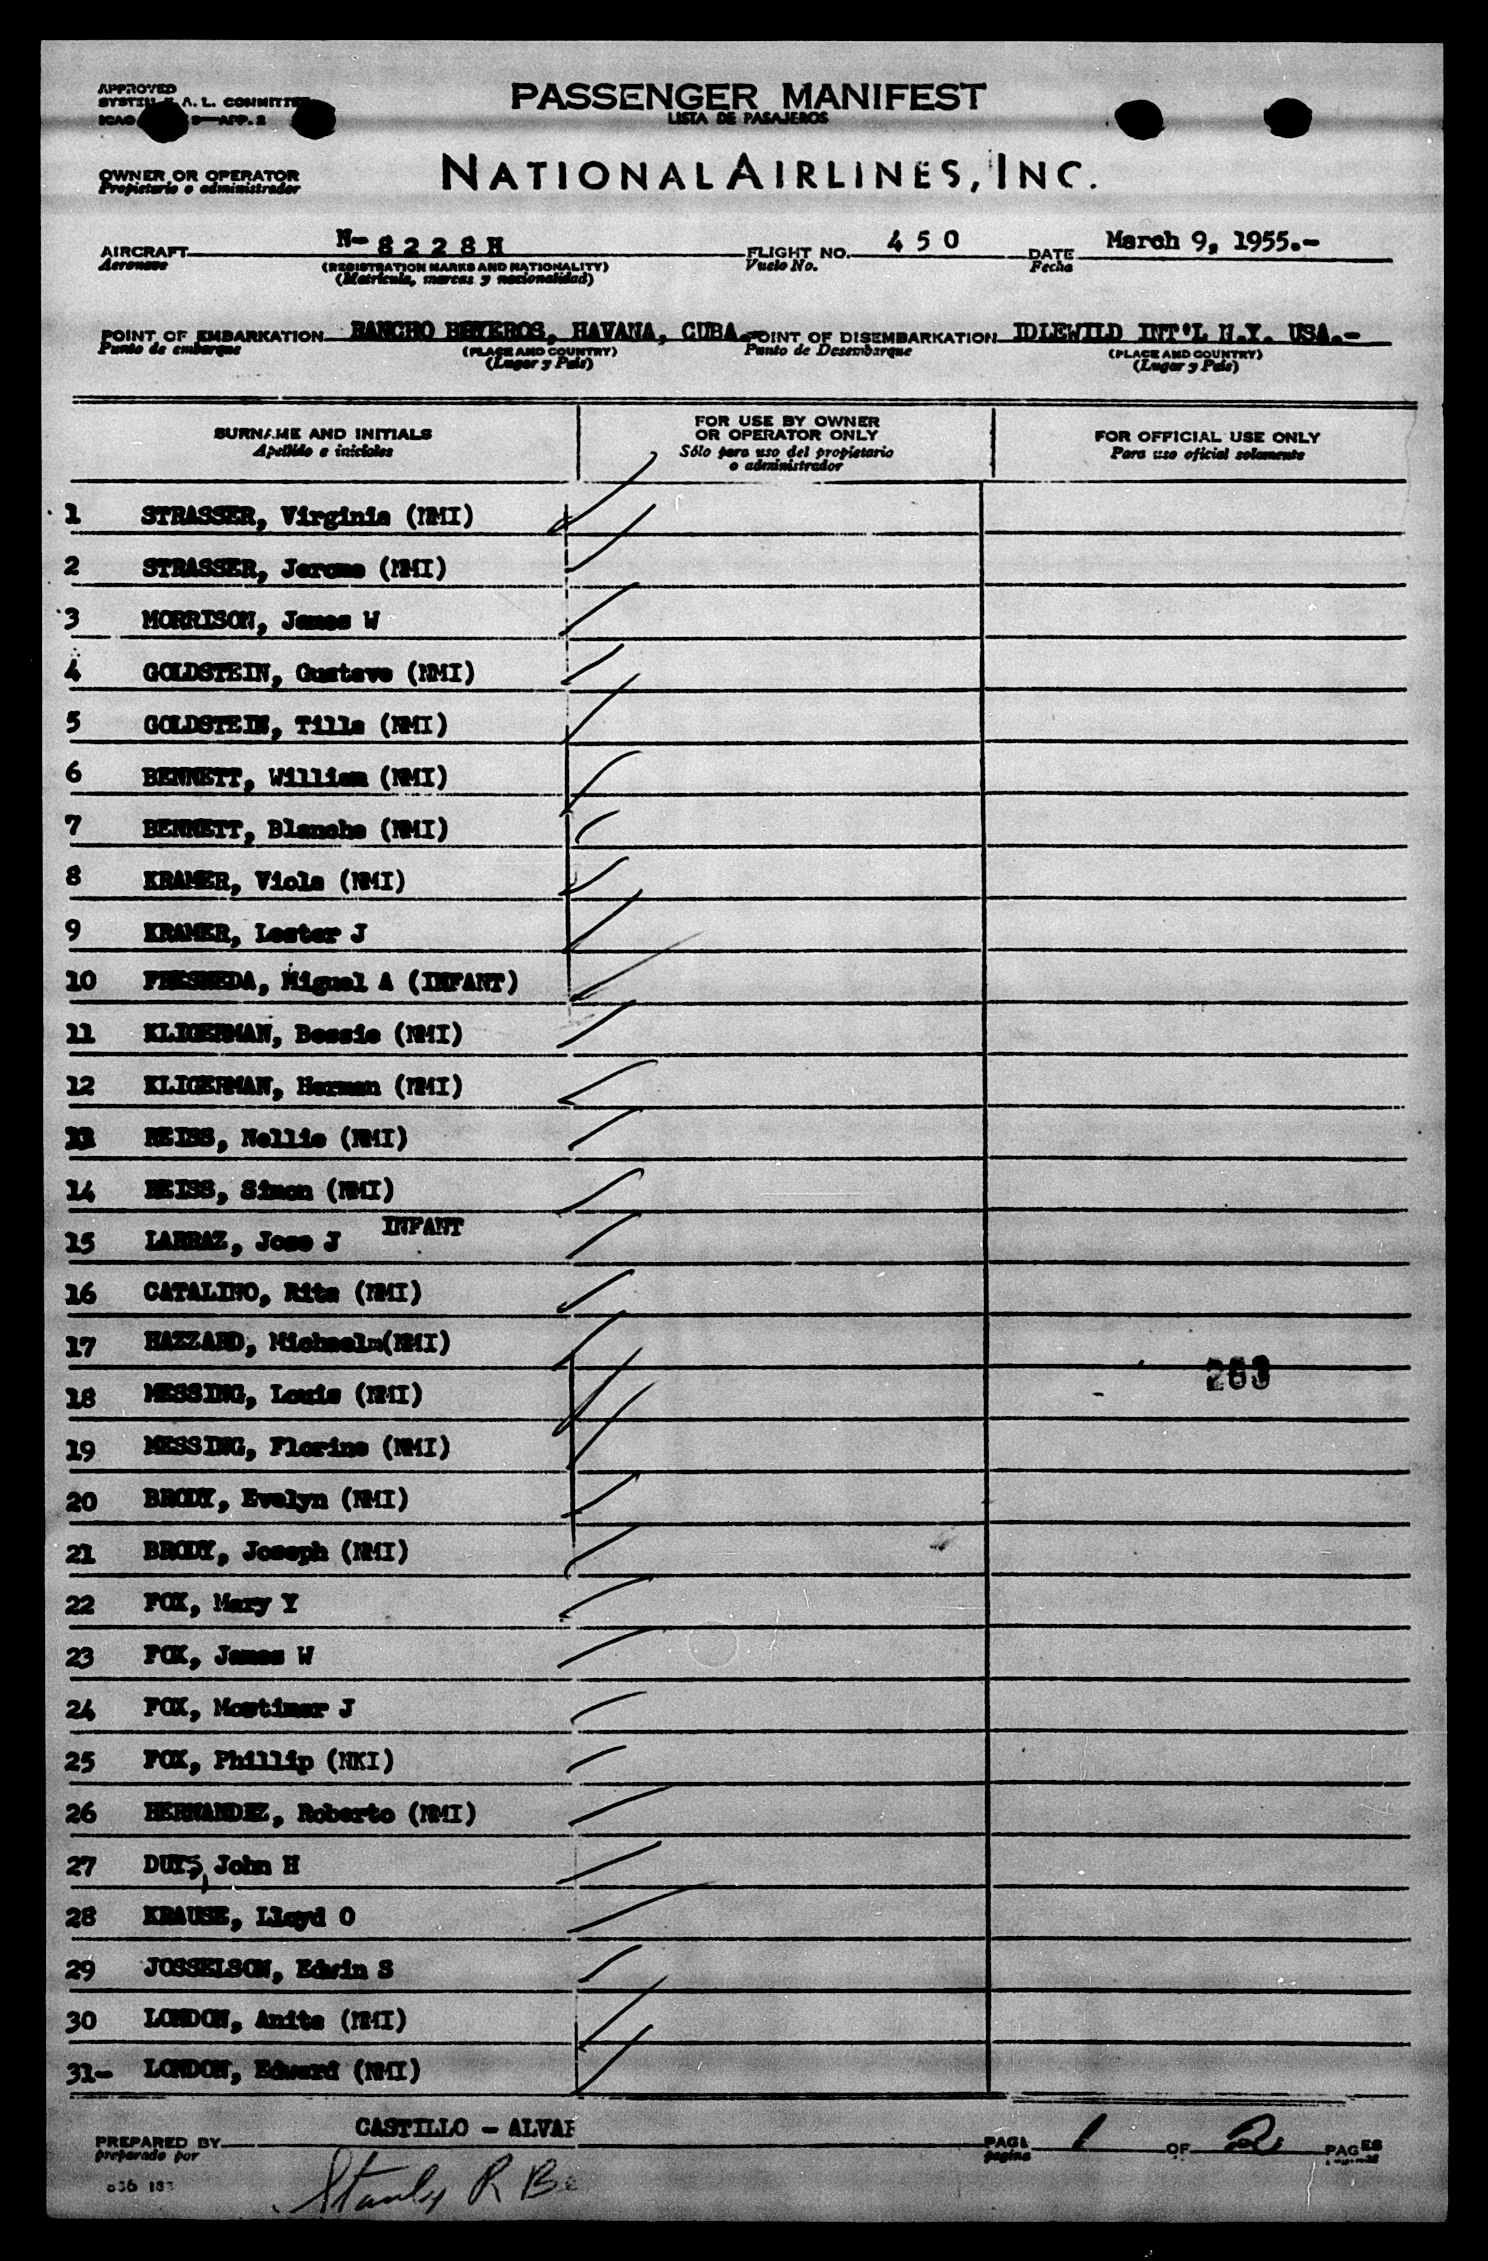 APPROVED
PASSENGER MANIFEST
SYSTEM A. L. COMMITTEE
LISTA DE PASAJEROS
ICAO 9—APP. 2
OWNER OR OPERATOR
Propietario o administrador
NATIONAL AIRLINES, INC.
AIRCRAFT N- 8 2 2 8 H FLIGHT NO. 4 5 0 DATE March 9, 1955.-
Aeronave (REGISTRATION MARKS AND NATIONALITY) Vuelo No. Fecha
(Matrícula, marcas y nacionalidad)
POINT OF EMBARKATION RANCHO BOYEROS, HAVANA, CUBA.- POINT OF DISEMBARKATION IDLEWILD INT'L N.Y. USA.-
Punto de embarque (PLACE AND COUNTRY) Punto de Desembarque (PLACE AND COUNTRY)
(Lugar y País) (Lugar y País)
SURNAME AND INITIALS FOR USE BY OWNER OR OPERATOR ONLY FOR OFFICIAL USE ONLY
Apellido e iniciales Sólo para uso del propietario o administrador Para uso oficial solamente
1 STRASSER, Virginia (NMI)
2 STRASSER, Jerome (NMI)
3 MORRISON, James W
4 GOLDSTEIN, Gustave (NMI)
5 GOLDSTEIN, Tilla (NMI)
6 BENNETT, William (NMI)
7 BENNETT, Blanche (NMI)
8 KRAMER, Viola (NMI)
9 KRAMER, Lester J
10 Miguel A (INFANT)
11 KLIGERMAN, Bessie (NMI)
12 KLIGERMAN, Herman (NMI)
13 REISS, Nellie (NMI)
14 REISS, Simon (NMI)
15 LARRAZ, Jose J INFANT
16 CATALINO, Rita (NMI)
17 HAZZARD, Michaelm(NMI)
263
18 MESSING, Louis (NMI)
19 MESSING, Florine (NMI)
20 BRODY, Evelyn (NMI)
21 BRODY, Joseph (NMI)
22 FOX, Mary Y
23 FOX, James W
24 FOX, Mortimer J
25 FOX, Phillip (NKI)
26 HERNANDEZ, Roberto (NMI)
27 DUYS, John H
28 KRAUSE, Lloyd O
29 JOSSELSON, Edwin S
30 LONDON, Anita (NMI)
31- LONDON, Edward (NMI)
PREPARED BY CASTILLO - ALVAR PAGE 1 OF 2 PAGES
preparado por pagina
Stanly R Be